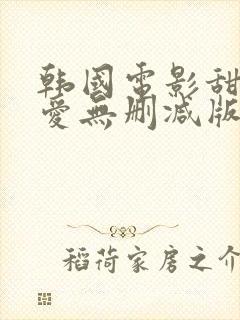 韩國電影甜
愛無刪減版
稻荷家房之介